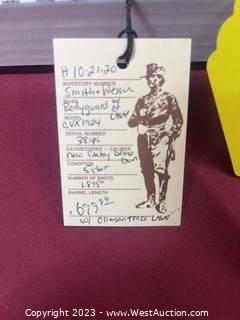 H 10-21-20
INVENTORY NUMBER
Smith & Wesson
MAKE
Bodyguard w/
MODEL
CVX1924
SERIAL NUMBER
38spl
GAUGE/CHOKE – CALIBER
New Factory Demo Gun
CONDITION
5 shot
NUMBER OF SHOTS
1.875"
BARREL LENGTH
$ 699
w/ Crimson Trace Laser
Copyright © 2023 - WestAuction.com